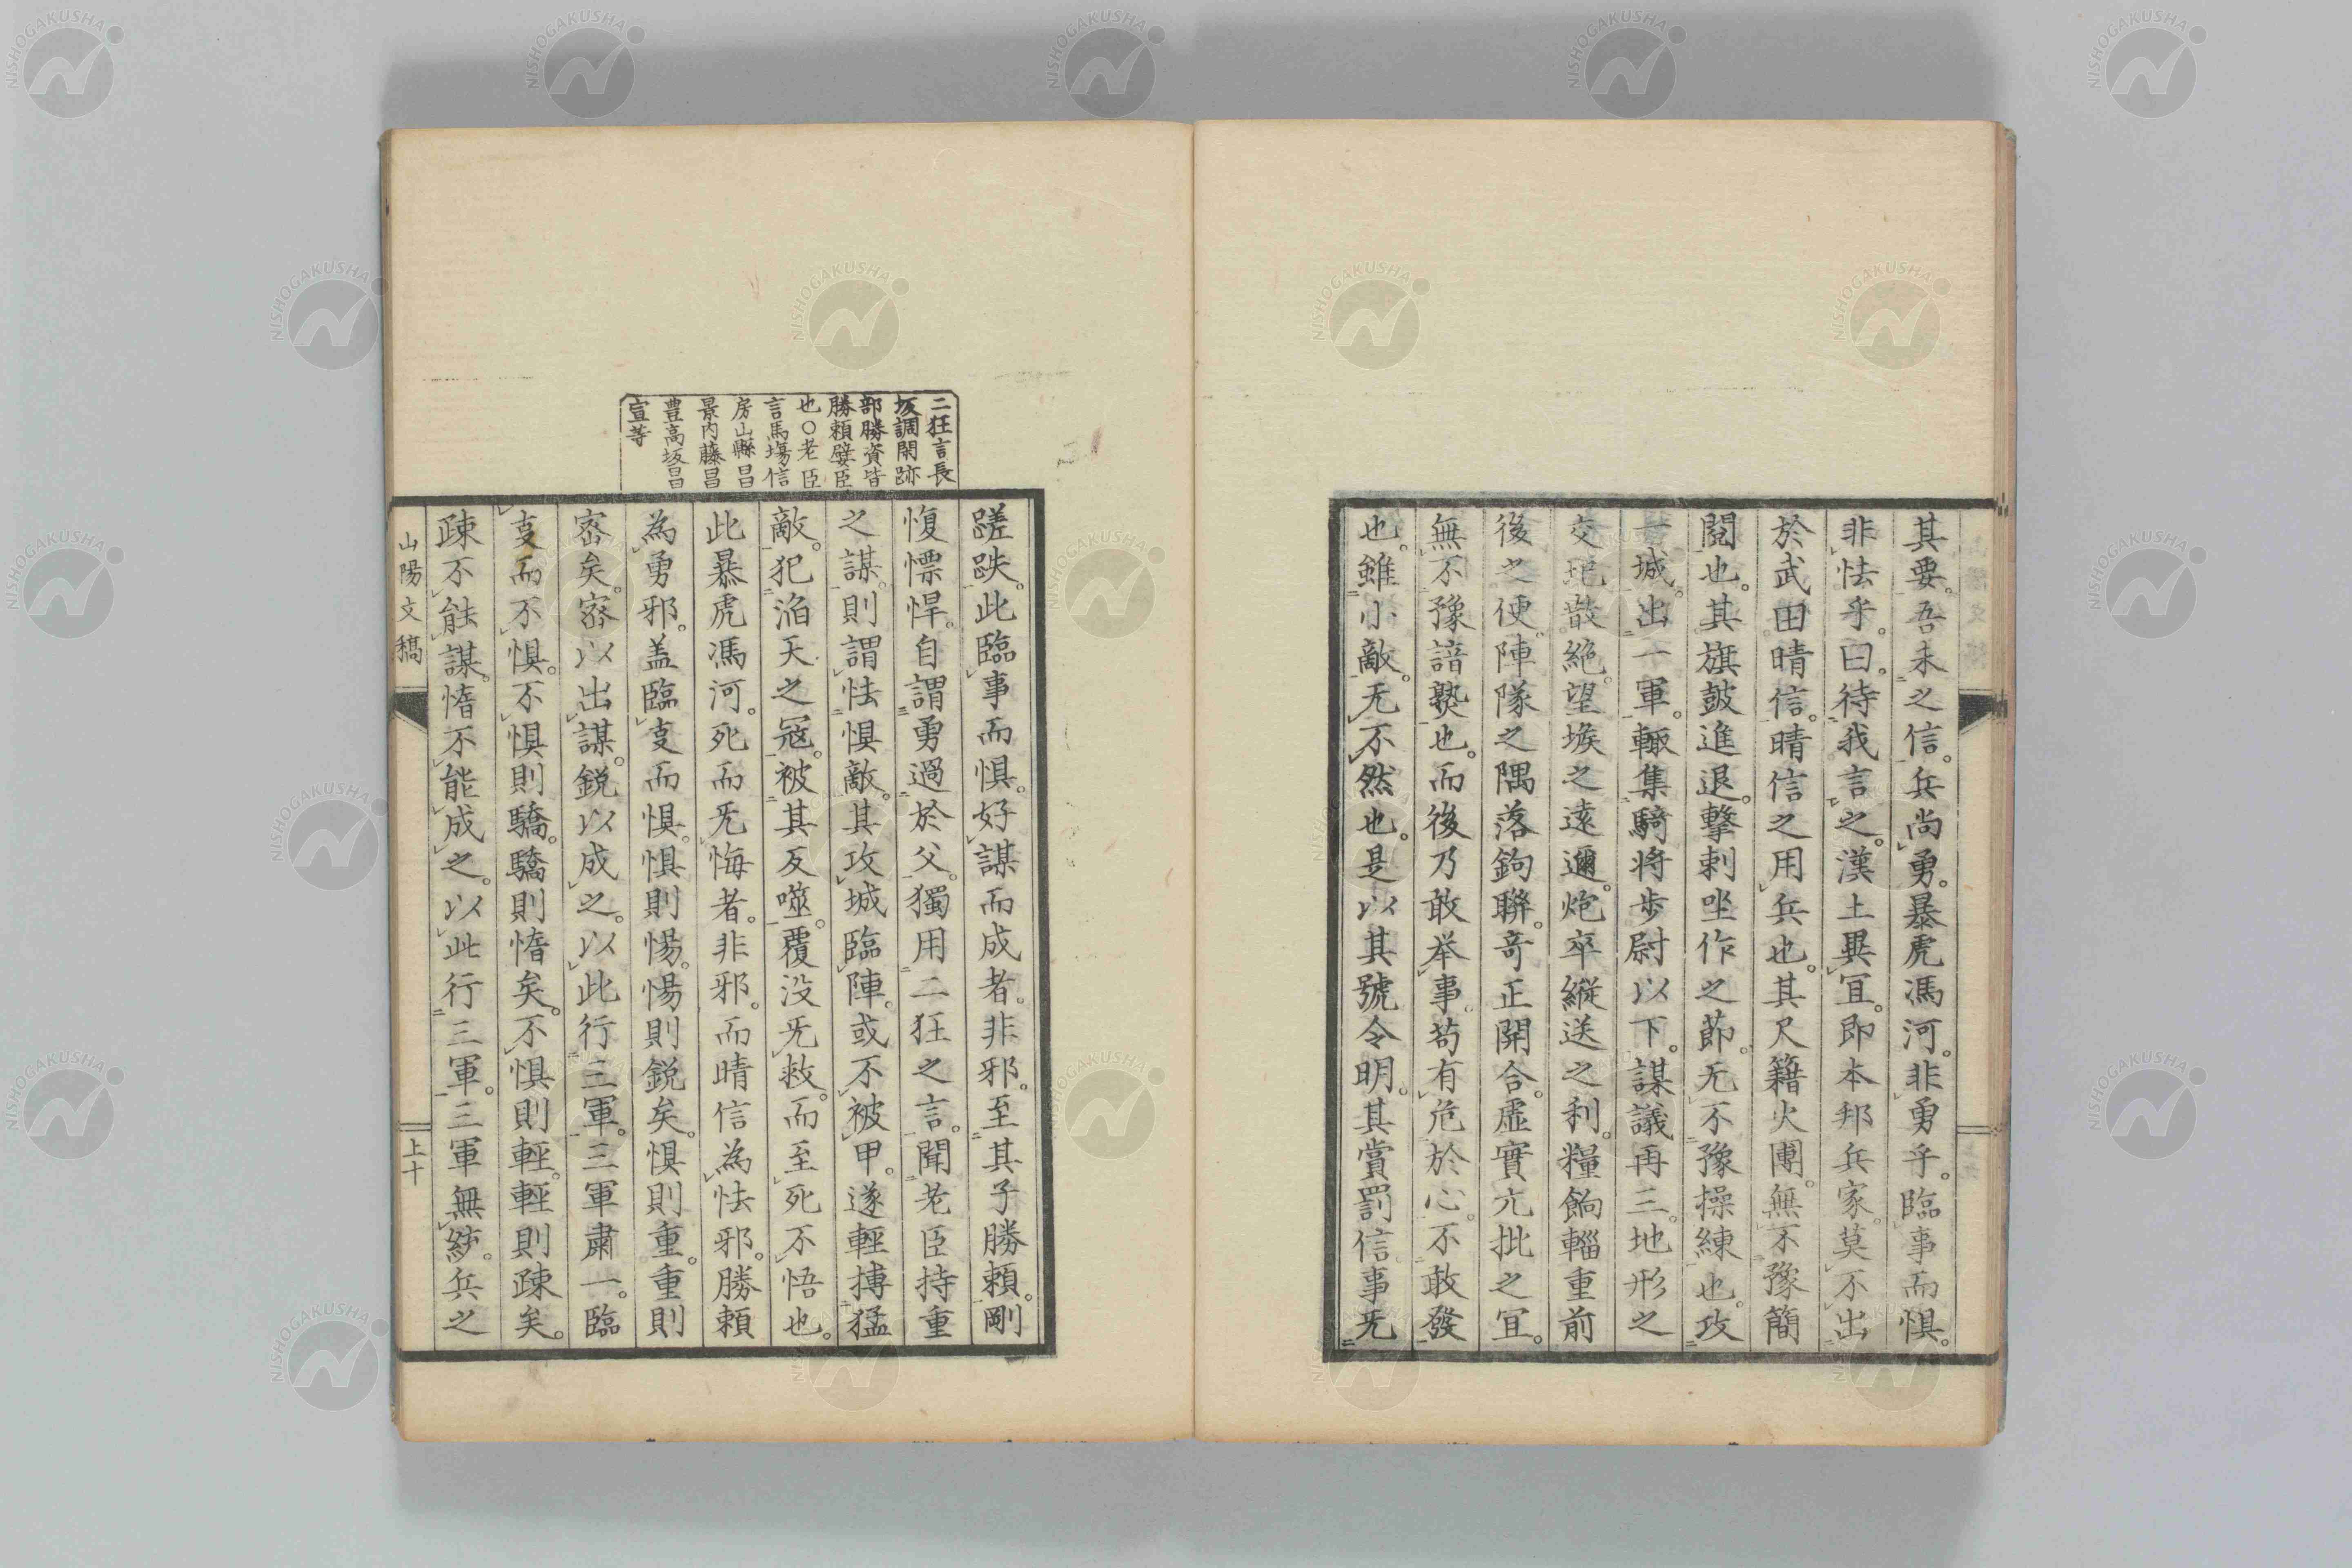 其要。吾未之信。兵尚勇。暴虎馮河。非勇乎。臨事而惧。
非怯乎。曰。待我言之。漢土異冝。即本邦兵家。莫不出
於武田晴信。晴信之用兵也。其尺籍火團。無不豫簡
閲也。其旗鼓進退。擊刺坐作之節。无不豫操練也。攻
一城。出一軍。輙集騎將步尉以下。謀議再三。地形之
交
散絶。望堠之遠邇。炮卒縱送之利。糧餉輜重前
後之便。陣隊之隅落鉤聯。奇正開合。虛實亢批之冝。
無不豫諳熟也。而後乃敢举事。苟有危於心。不敢發
也。雖小敵。无不然也。是以其號令明。其賞罰信。事无
蹉跌。此臨事而惧。好謀而成者。非邪。至其子勝頼。剛
愎慓悍。自謂勇過於父。獨用二狂之言。聞老臣持重
之謀。則謂怯惧敵。其攻城臨陣。或不被甲。遂輕搏猛
敵。犯滔天之冦。被其反噬。覆没无救。而至死不悟也。
此暴虎馮河。死而无悔者。非邪。而晴信為怯邪。勝頼
為勇邪。盖臨事而惧。惧則惕。惕則鋭矣。惧則重。重則
宻矣。宻以出謀。鋭以成之。以此行三軍。三軍肅一。臨
事而不惧。不惧則驕。驕則惰矣。不惧則輕。輕則疎矣。
疎不能謀。惰不能成之。以此行三軍。三軍無紡。兵之
二狂言長
坂調閑跡
部勝資皆
勝頼嬖臣
也○老臣
言馬塲信
房山縣昌
景内藤昌
豊高坂昌
宣等
山陽文稿
上十
NISHOGAKUSHA